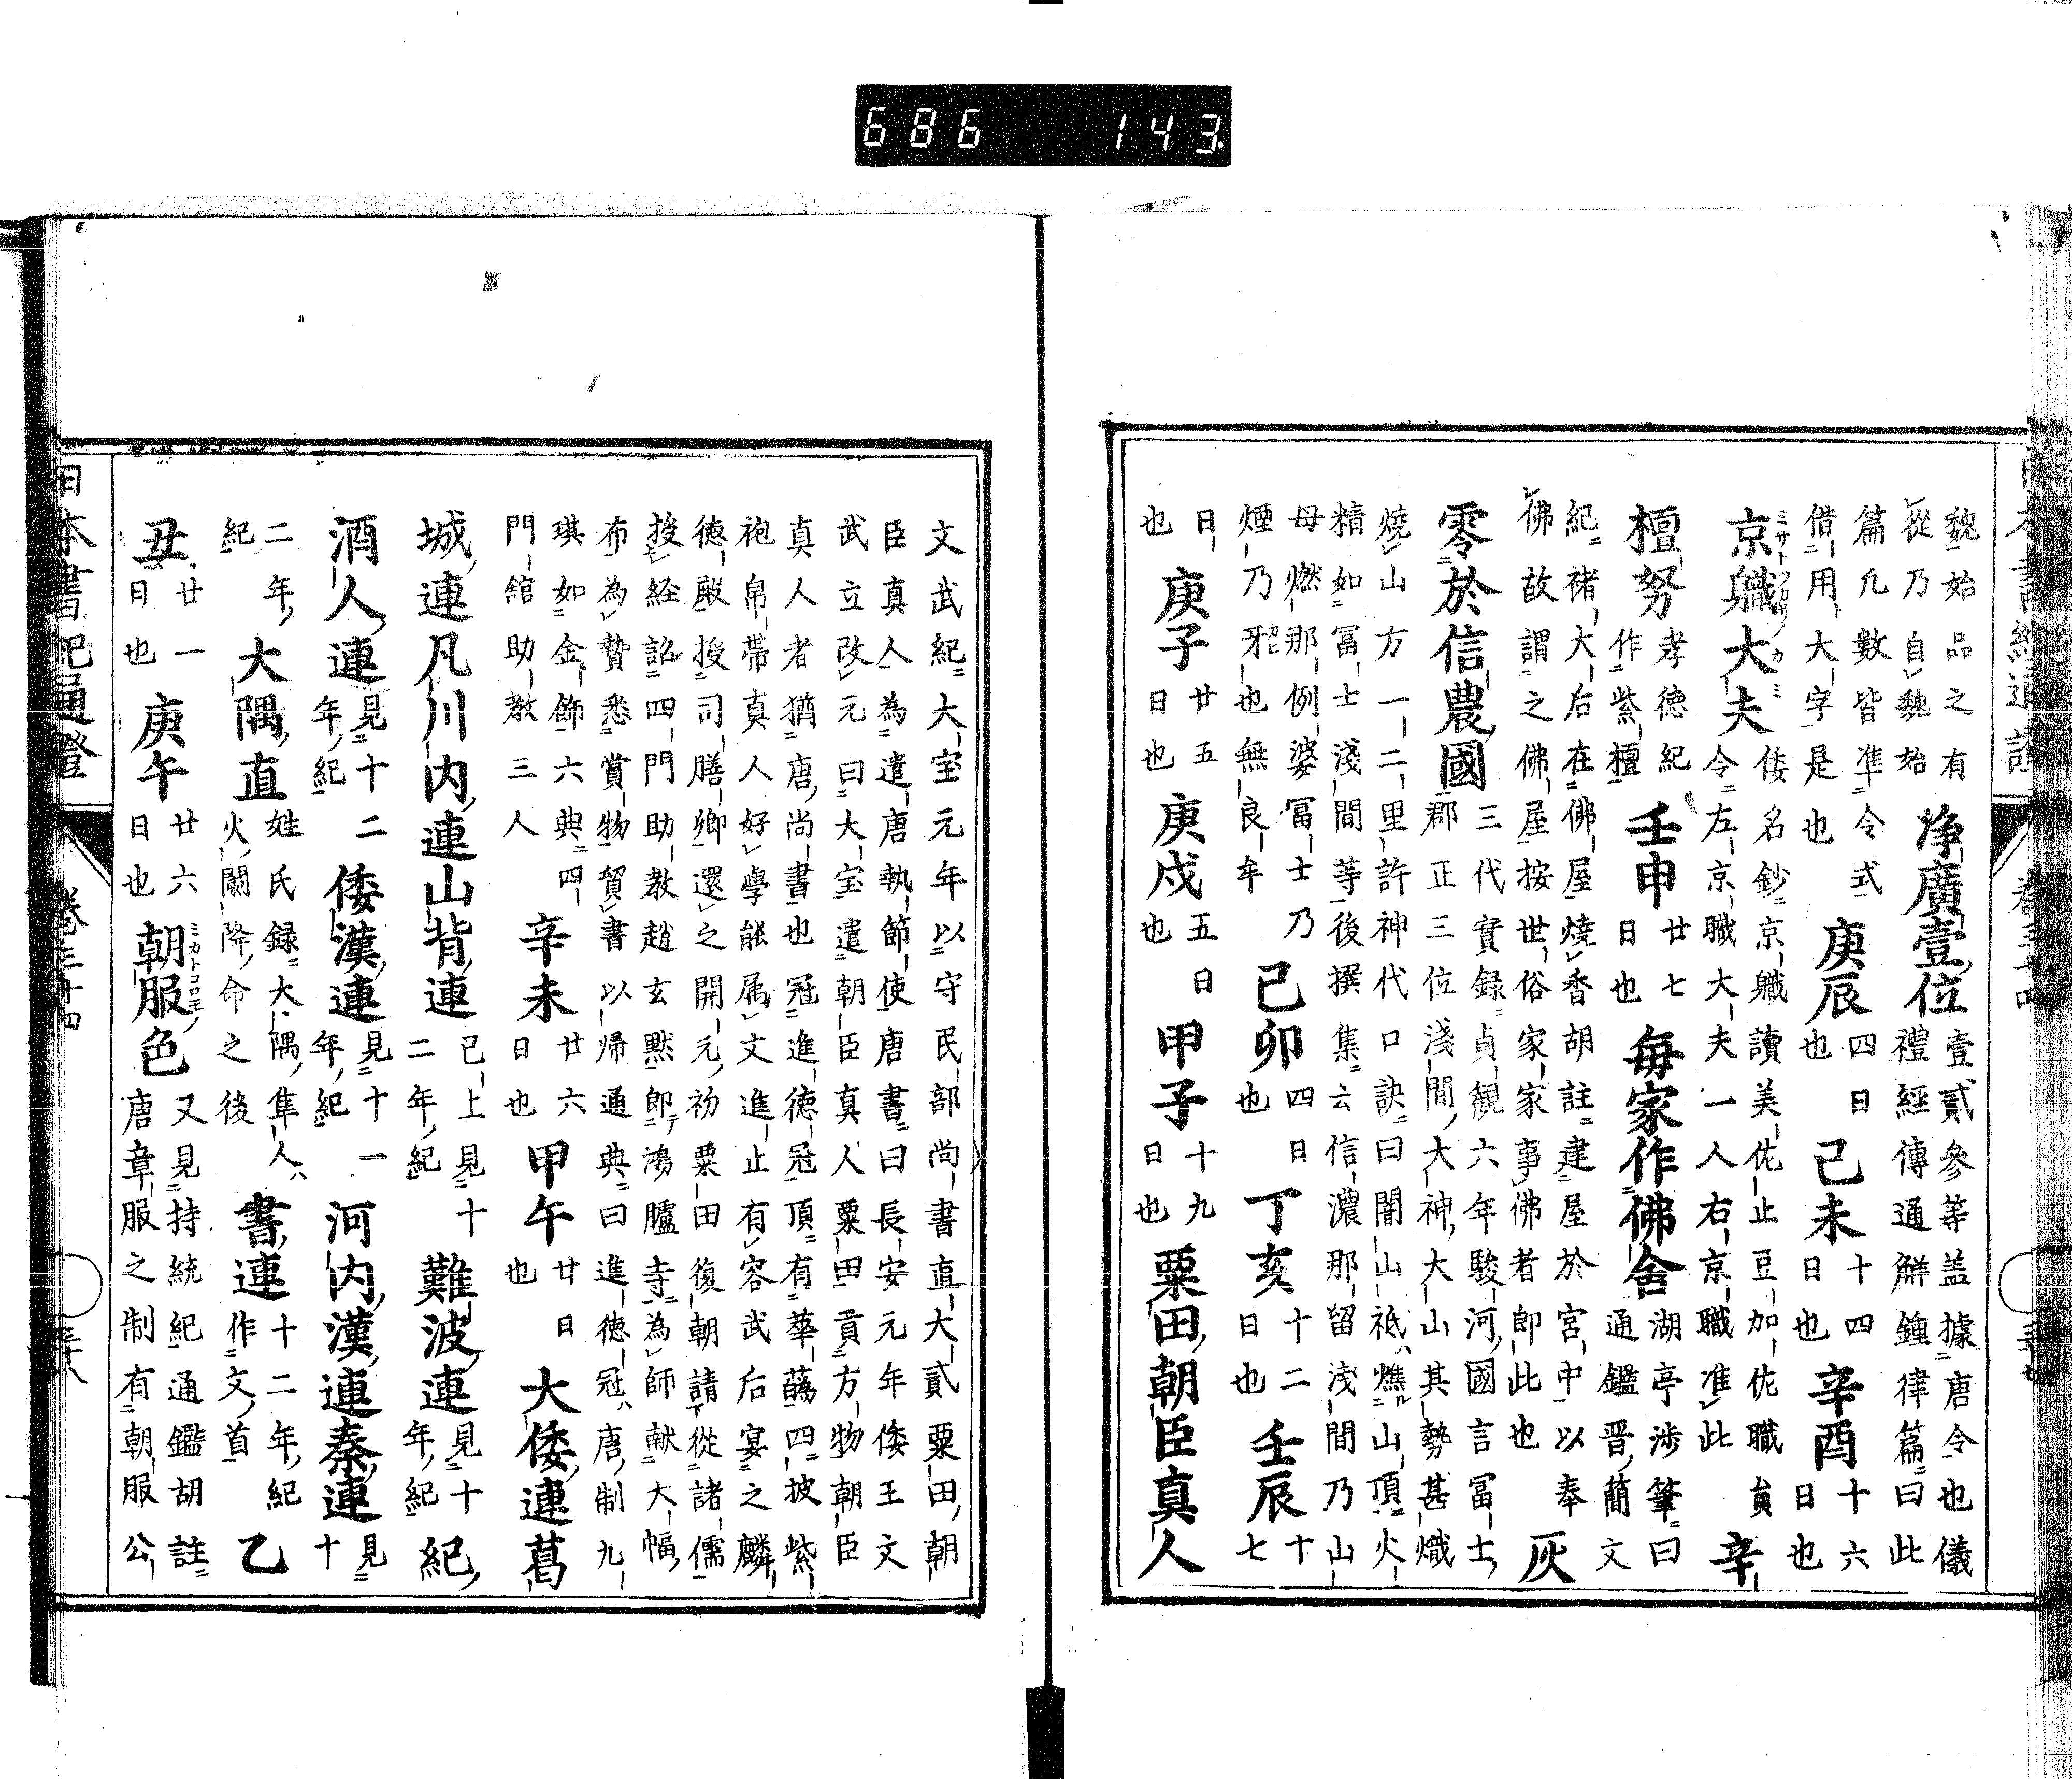 686 143
魏始品之有
從乃自魏始
淨廣壹位
壹貳參等盖據唐令也儀
禮經傳通解鍾律篇曰此
篇凡數皆準令式
借用大字是也
庚辰
四日也
己未
十四日也
辛酉
十六日也
京職大夫
ミサトツカサノカミ
倭名鈔京職讀美佐止豆加佐職員
令左京職大夫一人右京職准此
辛
檀努
孝德紀
作紫檀
壬申
廿七日也
每家作佛舍
湖亭涉筆曰
通鑑晉簡文
紀褚大后在佛屋燒香胡註建屋於宮中以奉
佛故謂之佛屋按世俗家家事佛者即此也
灰
零於信農國
三代實錄貞觀六年駿河國言富士
郡正三位淺間大神大山其勢甚熾
燒山方一二里許神代口訣曰闇山祇燋山頂火
精如富士淺間等後撰集云信濃那留淺間乃山
母燃那例婆富士乃
煙乃牙也無良牟
己卯
四日也
丁亥
十二日也
壬辰
十七
日也
庚子
廿五日也
庚戌
五日也
甲子
十九日也
粟田朝臣真人
文武紀大宝元年以守民部尚書直大貳粟田朝
臣真人為遣唐執節使唐書曰長安元年倭王文
武立改元曰大宝遣朝臣真人粟田貢方物朝臣
真人者猶唐尚書也冠進德冠頂有華蘤四披紫
袍帛帶真人好學能属文進止有容武后宴之麟
德殿授司膳卿還之開元初粟田復朝請從諸儒
授経詔四門助教趙玄黙即鴻臚寺為師献大幅
布為贄悉賞物貿書以帰通典曰進徳冠唐制九
琪如金飾六典四
門舘助教三人
辛未
廿六日也
甲午
廿日也
大倭連葛
城連凡川内連山背連
已上見十
二年紀
難波連
見十
年紀
紀
酒人連
見十二
年紀
倭漢連
見十一
年紀
河内漢連秦連
見十
二年
紀
大隅直
姓氏録大隅隼人
火闌降命之後
書連
十二年紀
作文首
乙
丑
廿一日也
庚午
廿六日也
朝服色
ミカトコロモノ
又見持統紀通鑑胡註
唐章服之制有朝服公
日本書紀通證
卷三十四
三十八